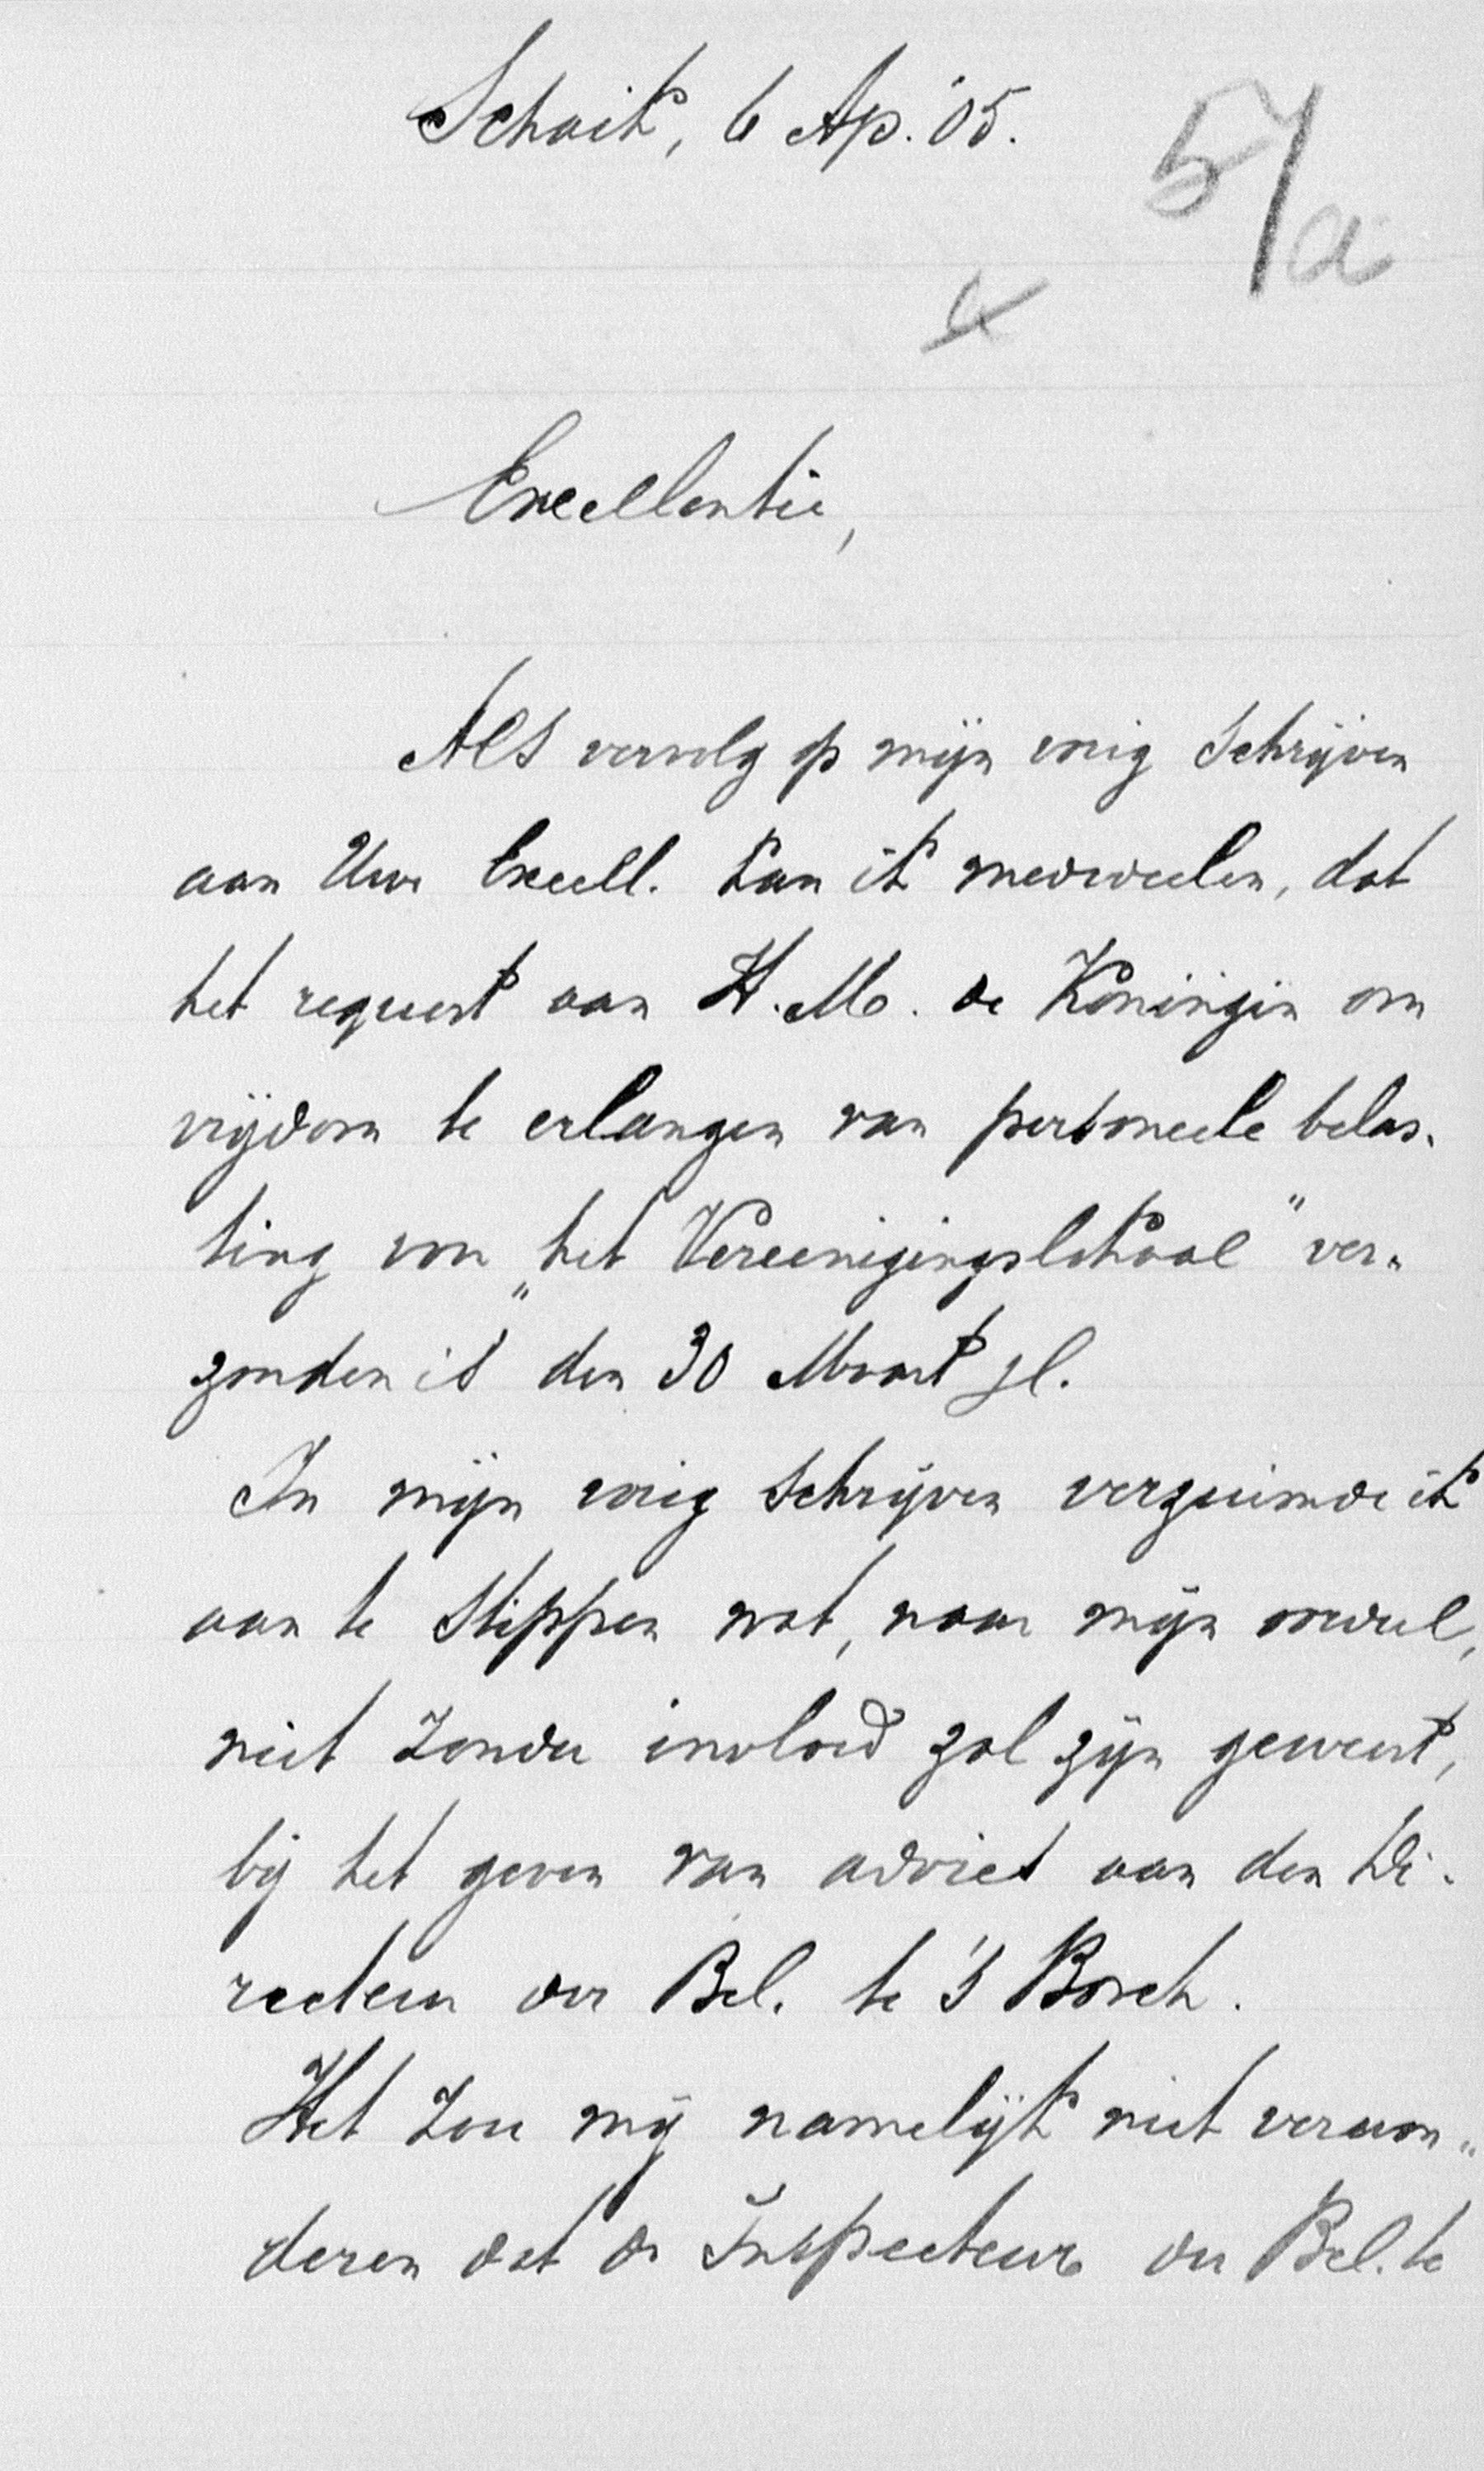 Schaik, 6 Ap. '05.
57/a
a
Excellentie,
Als vervolg op mijn vorig schrijven
aan Uwe Excell. kan ik mededeelen, dat
het request aan H.M. de Koningin om
vrijdom te erlangen van personeele belas-
ting von „het Vereenigingslokaal" ver-
zonden is den 30 Maart jl.
In mijn vorig schrijven verzuimde ik
aan te stippen wat, naar mijn oordeel,
niet zonder invloed zal zijn geweest,
bij het geven van advies aan den Di-
recteur der Bel. te 's Bosch.
Het zou mij namelijk niet verwon-
deren dat de Inspecteur der Bel. te